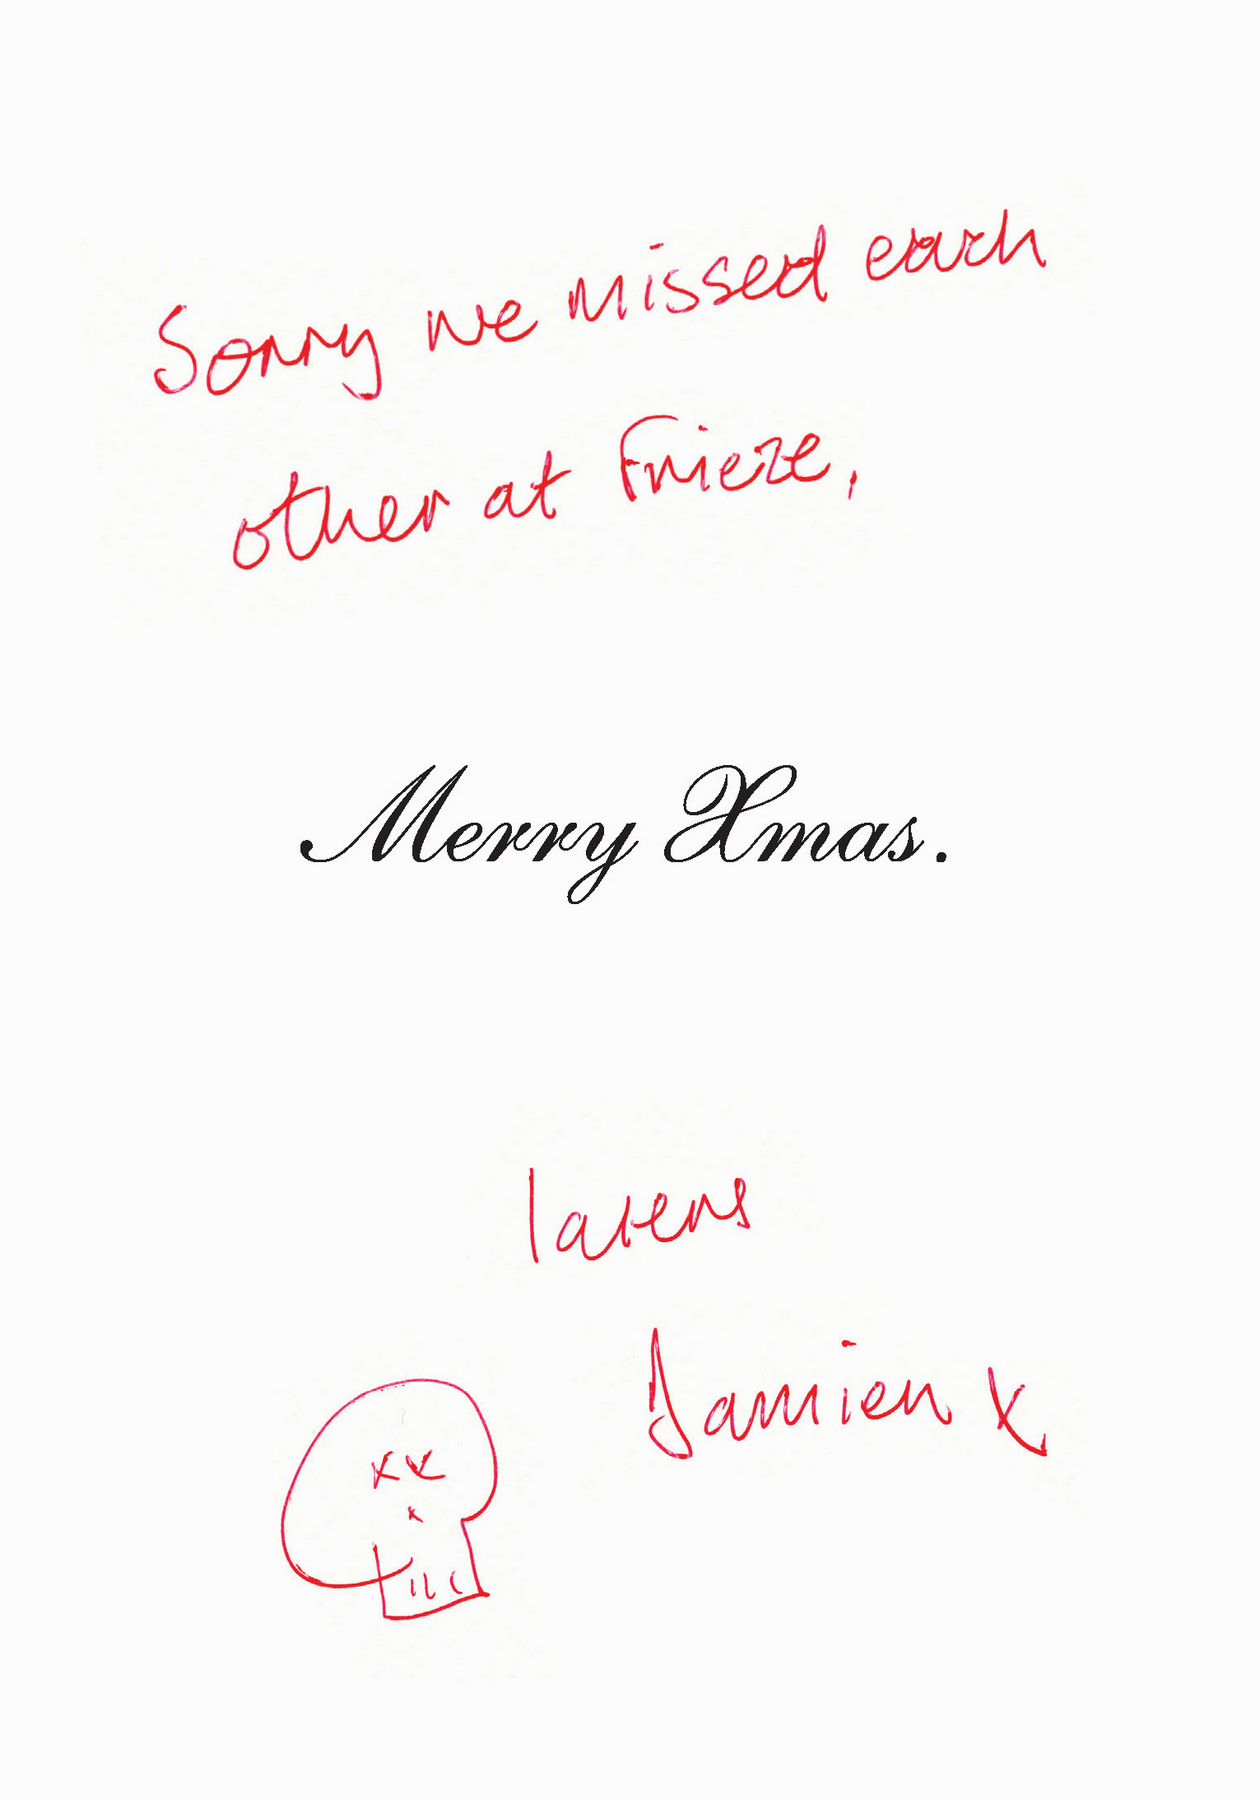 Sorry we missed each
other at Frieze,
Merry Xmas.
laters
Damien x